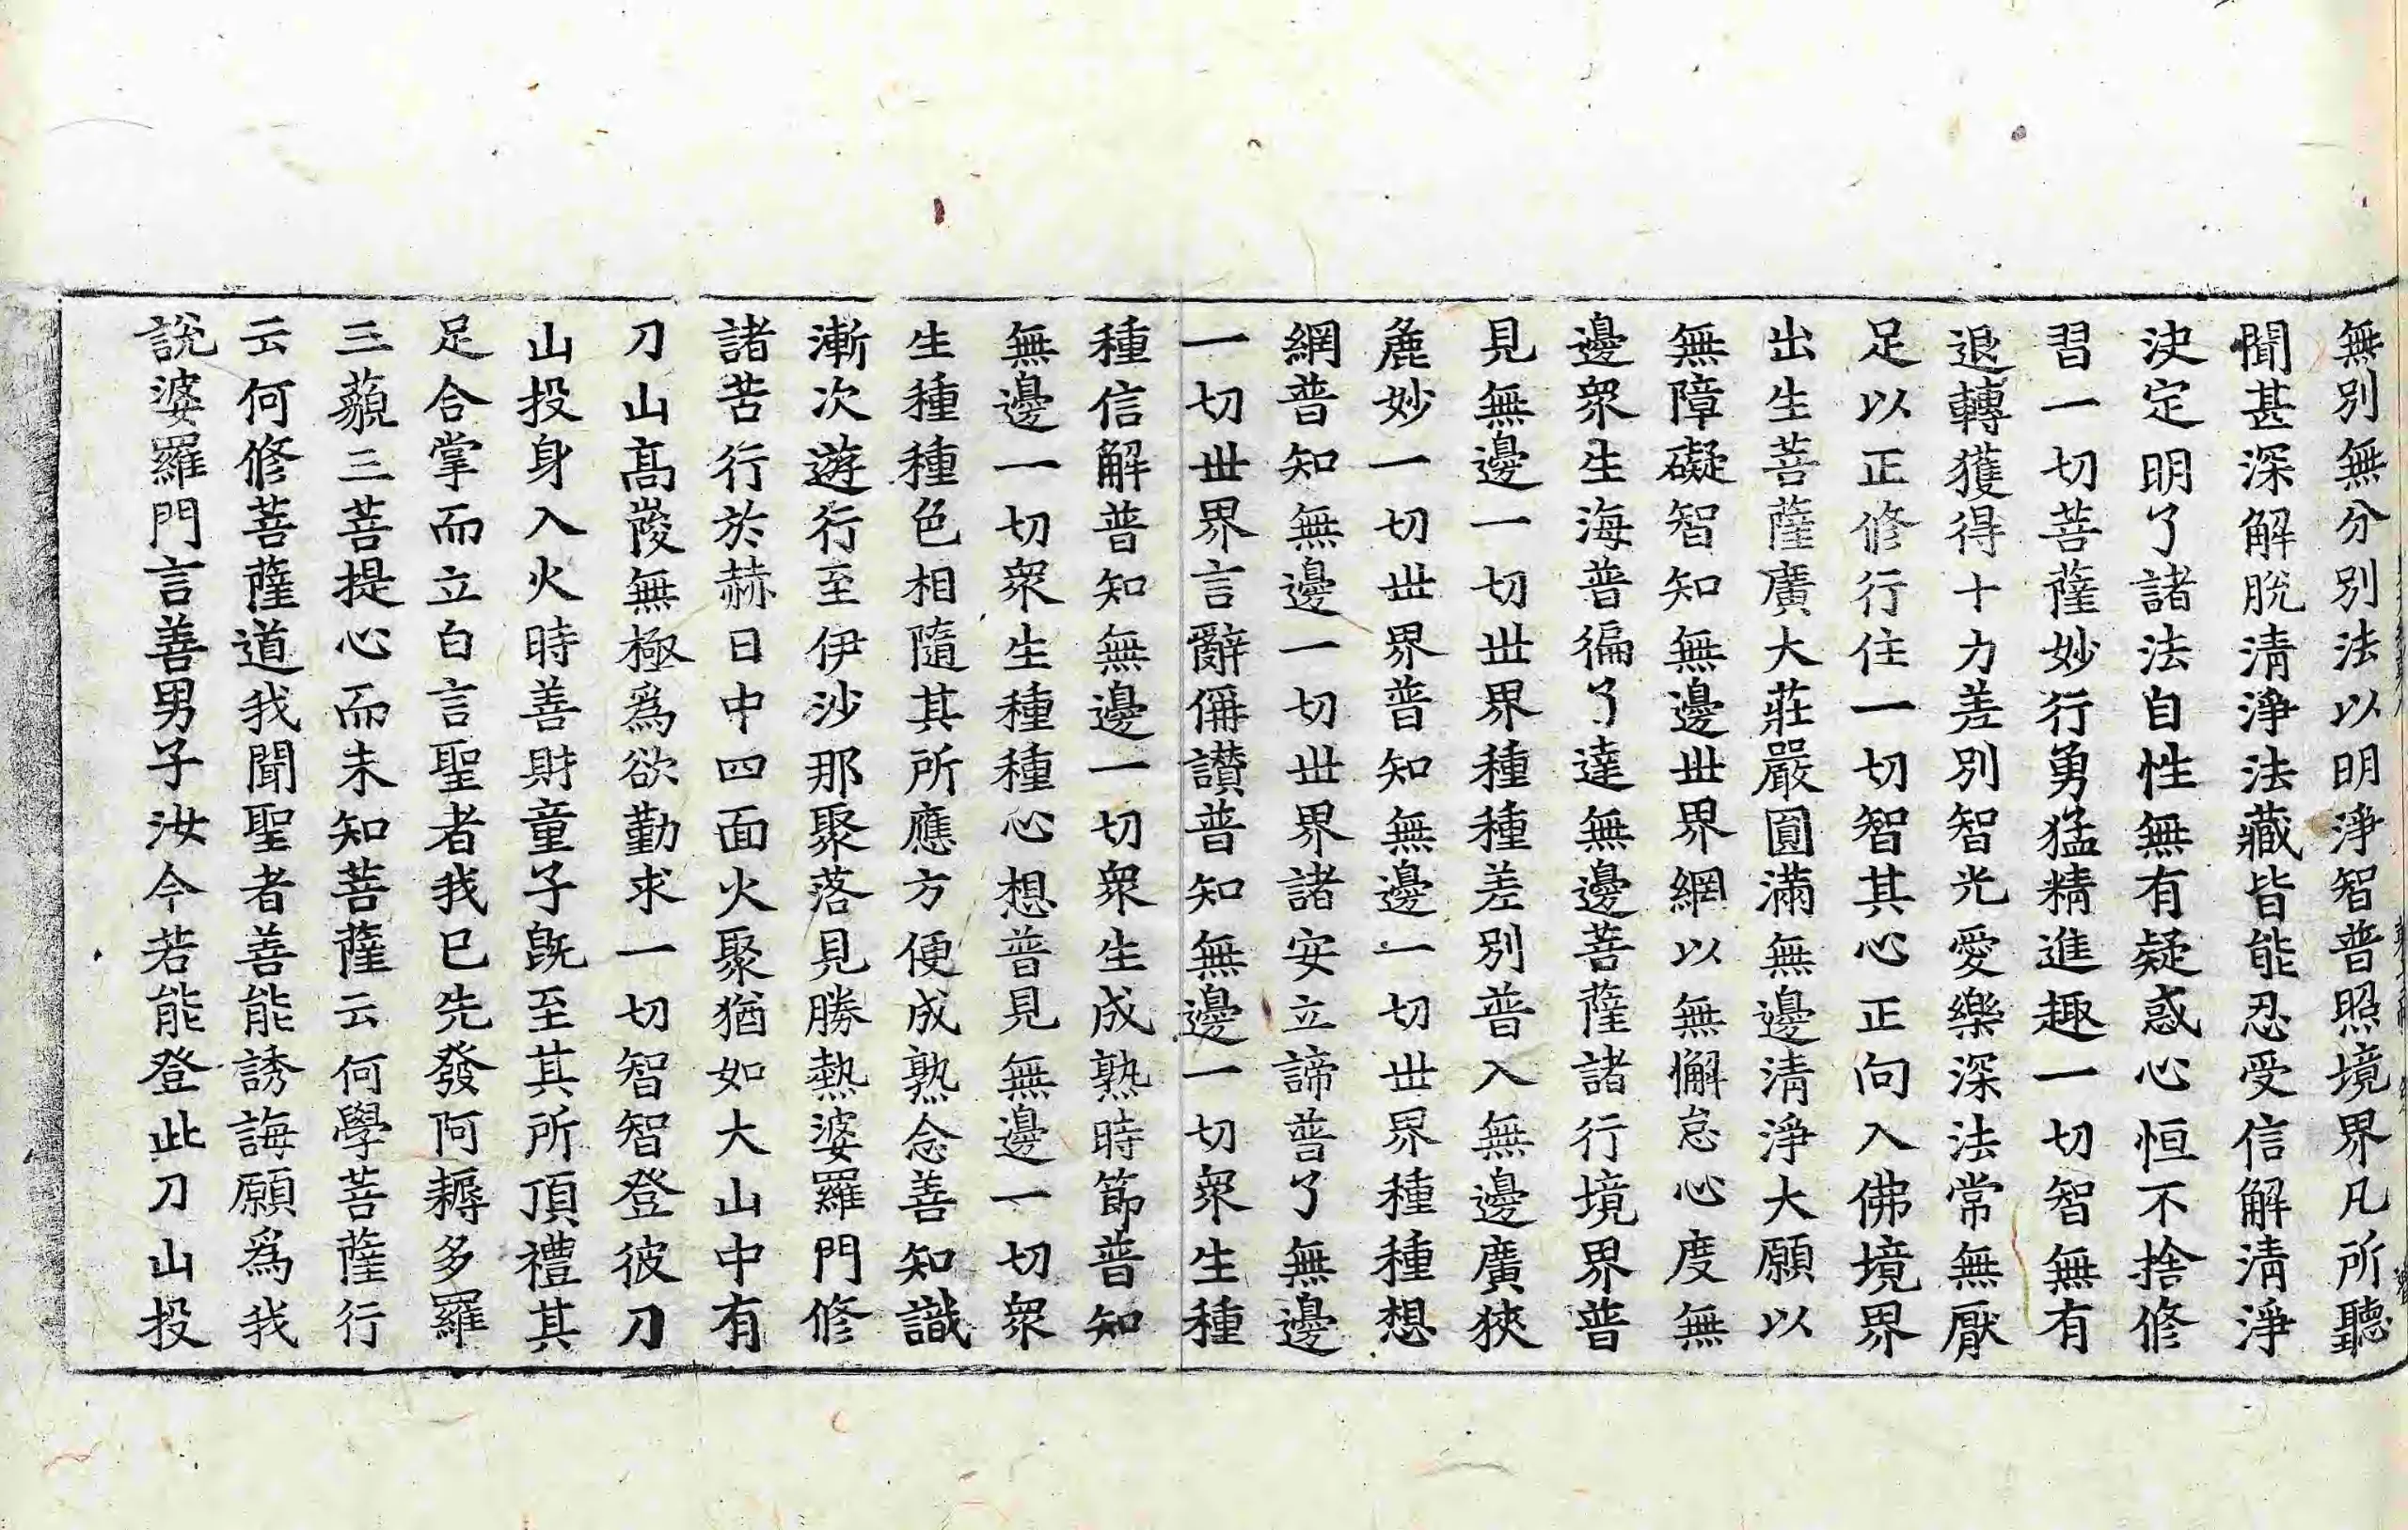 無別無分別法以明淨智普照境界凡所聽
聞甚深解脫清淨法藏皆能忍受信解清淨
決定明了諸法自性無有疑惑心恒不捨修
習一切菩薩妙行勇猛精進趣一切智無有
退轉獲得十力差別智光愛樂深法常無厭
足以正修行住一切智其心正向入佛境界
出生菩薩廣大莊嚴圓滿無邊清淨大願以
無障礙智知無邊世界網以無懈怠心度無
邊衆生海普徧了達無邊菩薩諸行境界普
見無邊一切世界種種差別普入無邊廣狹
麁妙一切世界普知無邊一切世界種種想
網普知無邊一切世界諸安立諦普了無邊
一切世界言辭稱讚普知無邊一切衆生種
種信解普知無邊一切衆生成熟時節普知
無邊一切衆生種種心想普見無邊一切衆
生種種色相隨其所應方便成熟念善知識
漸次遊行至伊沙那聚落見勝熱婆羅門修
諸苦行於赫日中四面火聚猶如大山中有
刀山高峻無極爲欲勤求一切智智登彼刀
山投身入火時善財童子旣至其所頂禮其
足合掌而立白言聖者我已先發阿耨多羅
三藐三菩提心而未知菩薩云何學菩薩行
云何修菩薩道我聞聖者善能誘誨願爲我
說婆羅門言善男子汝今若能登此刀山投